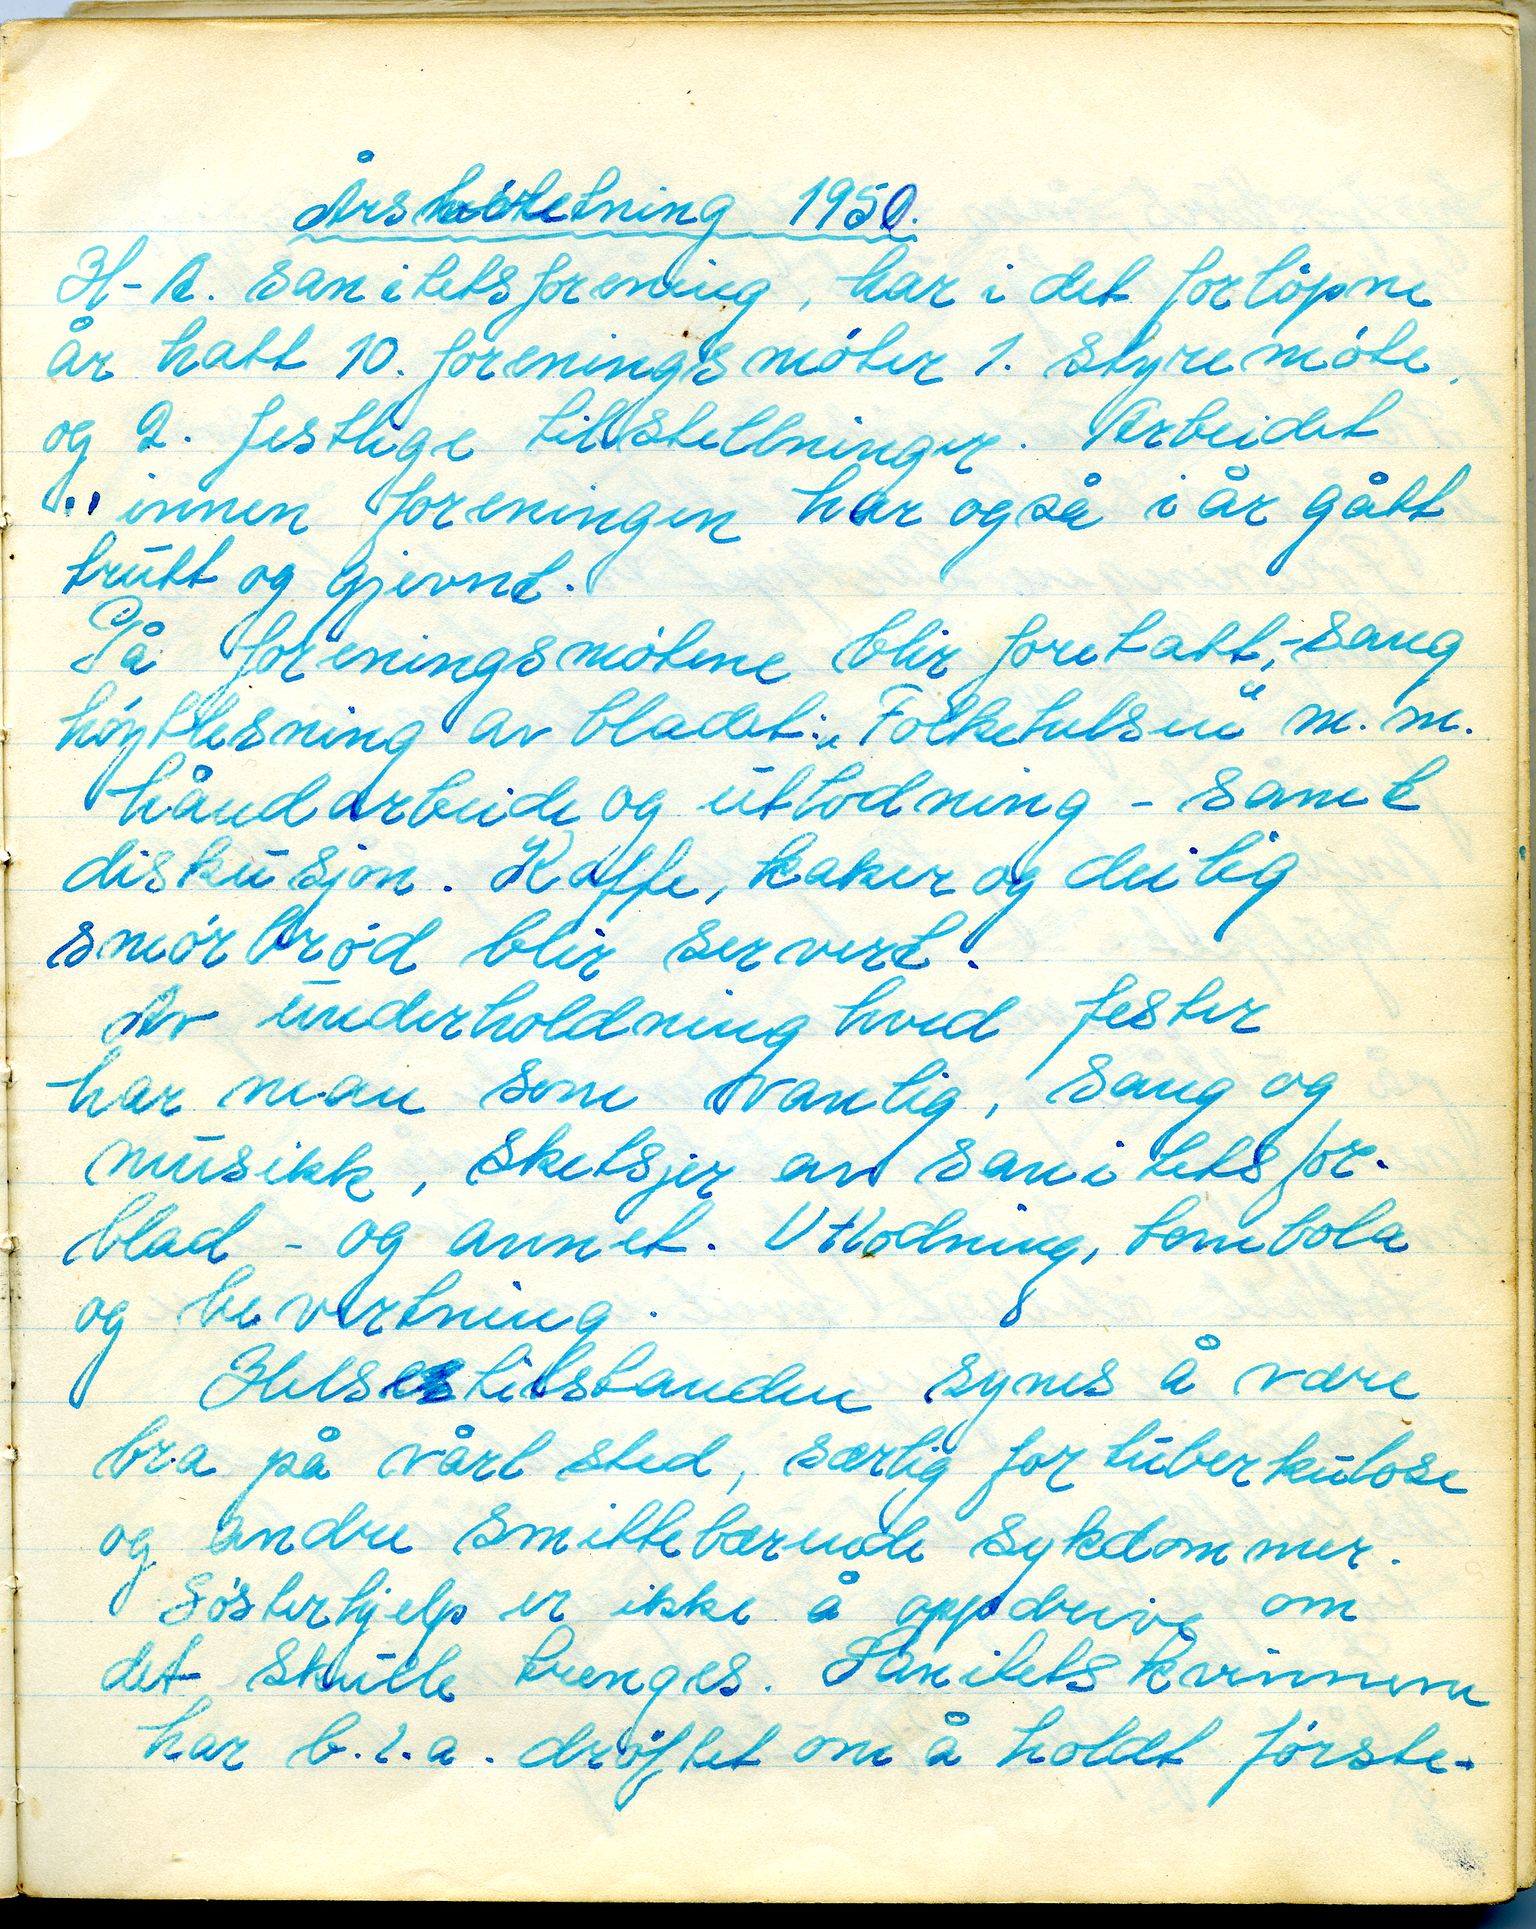 Årsberetning 1950.
H-A. sanitetsforening, har i det forløpne
år hatt 10. foreningsmøter 1. styremøte,
og 2. festlige tilstellninger. Arbeidet
" innen foreningen har også i år gått
trutt og gjevnt.
På foreningsmøtene blir foretatt;-sang
høytlesning av bladet: „Folkehelsen" m.m.
håndarbeide og utlodning - samt
diskusjon. Kaffe, kaker og deilig
smørbrød blir servert.
Av underholdning hved fester
har man som vanlig, sang og
musikk, sketsjer av sanitetsfor-
blad - og annet. Utlodning, tombola
og bevertning.
Helsestilstanden synes å være
bra på vårt sted, særlig for tuberkulose
og andre smittebærende sykdommer.
Søsterhjelp er ikke å oppdrive om
det skulle trenges. Sanitetskvinnene
har b.l.a. drøftet om å holdt første-